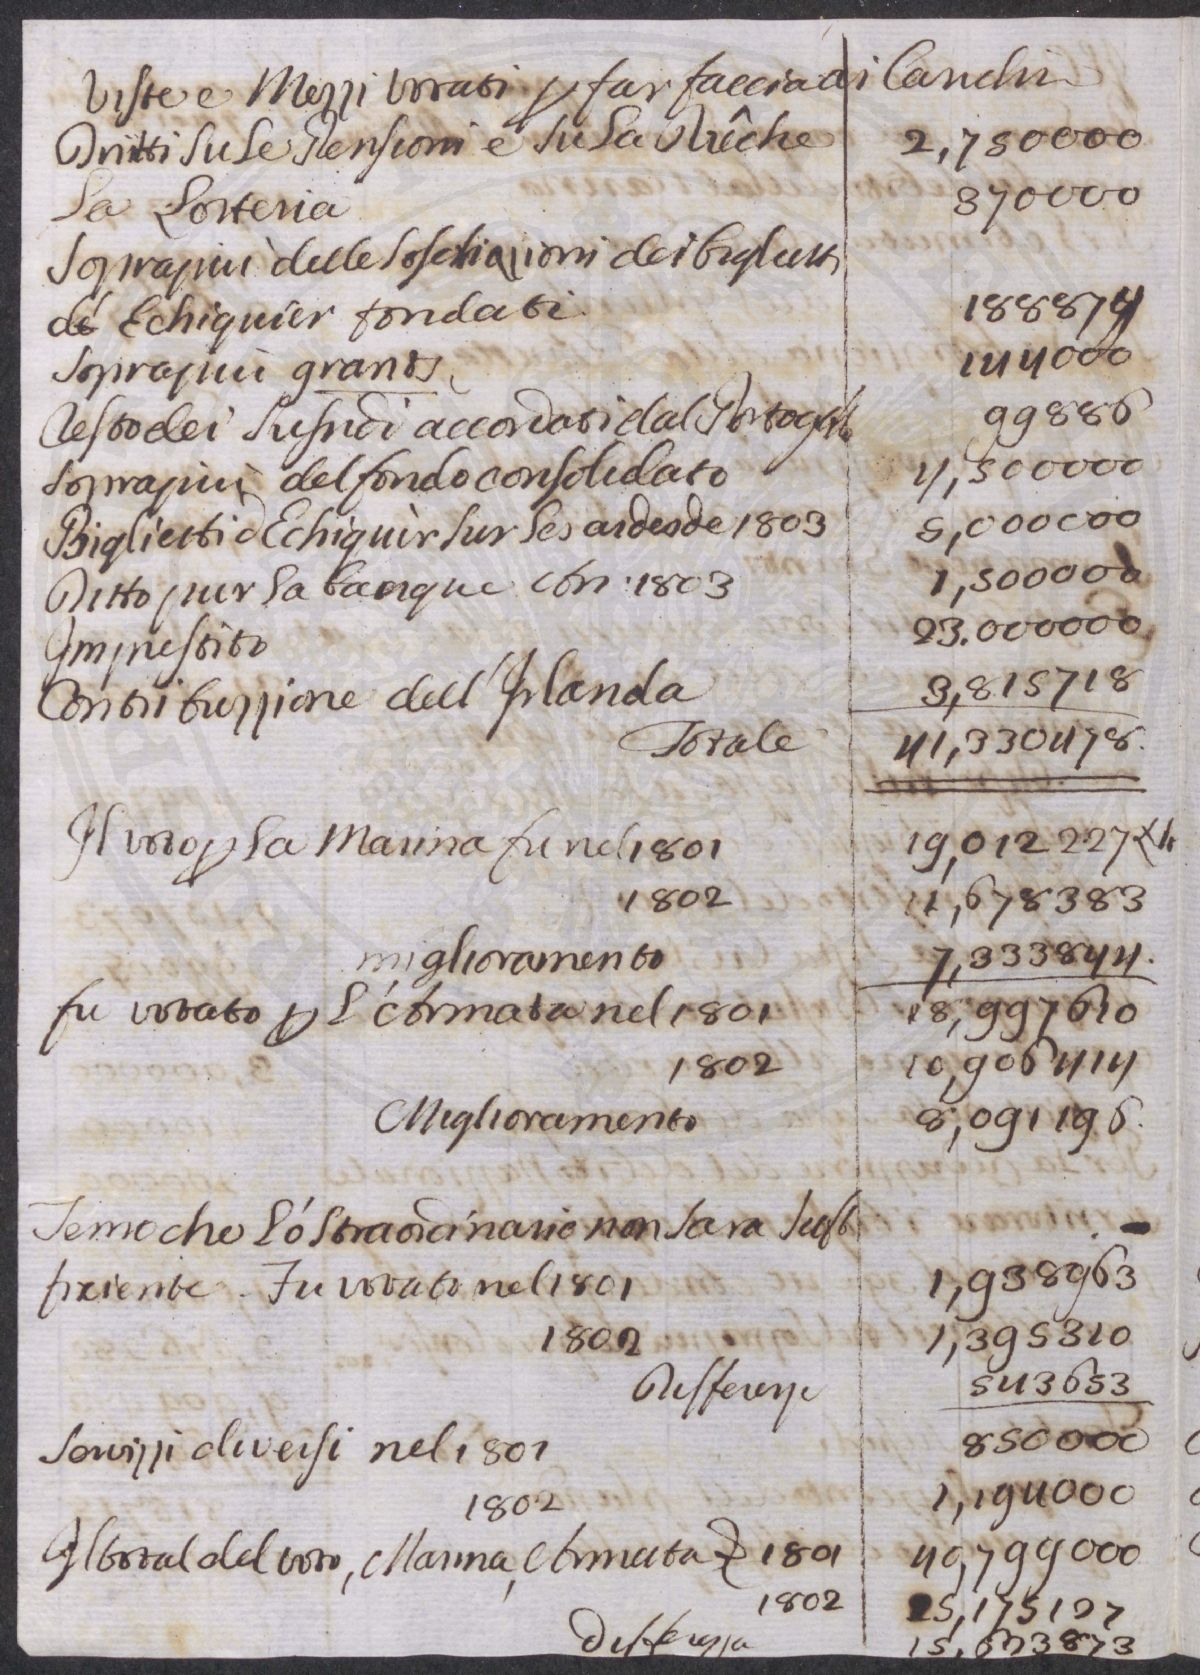 Viste e Mezzi votati p far faccia di Carichi
Dritti su le Pensioni e su la Drêche 2,750000
La Lotteria 370000
Soprapiù delle Soscrizioni dei biglietti
de Echiquier fondati 188874
Soprapiù grants 144000
Resto dei Susidi accordati dal Portogallo 99886
Soprapiù del fondo consolidato 4,500000
Biglietti d'Echiquier sur les aides de 1803 5,000000
Ditto pur la banque 1803 1,500000
Imprestito 23.000000
Contribuzzione dell'Irlanda 3,815718
Totale 41,330478.
Il voto p la Marina fu nel 1801 19,012227
1802 11,678383
miglioramento 7,333844.
fu votato p L'Armata nel 1801 18,997610
1802 10,906414
Miglioramento 8,091196.
Temo che L'ostraordinario non sara suf
ficiente. Fu votato nel 1801 1,938963
1802 1,395310
Differenze 543653
Servizzi diversi nel 1801 850000
1802 1,194000
Il total del voto, Marina, Armata & 1801 40,799000
1802 25,175127
Differenza 15,623873